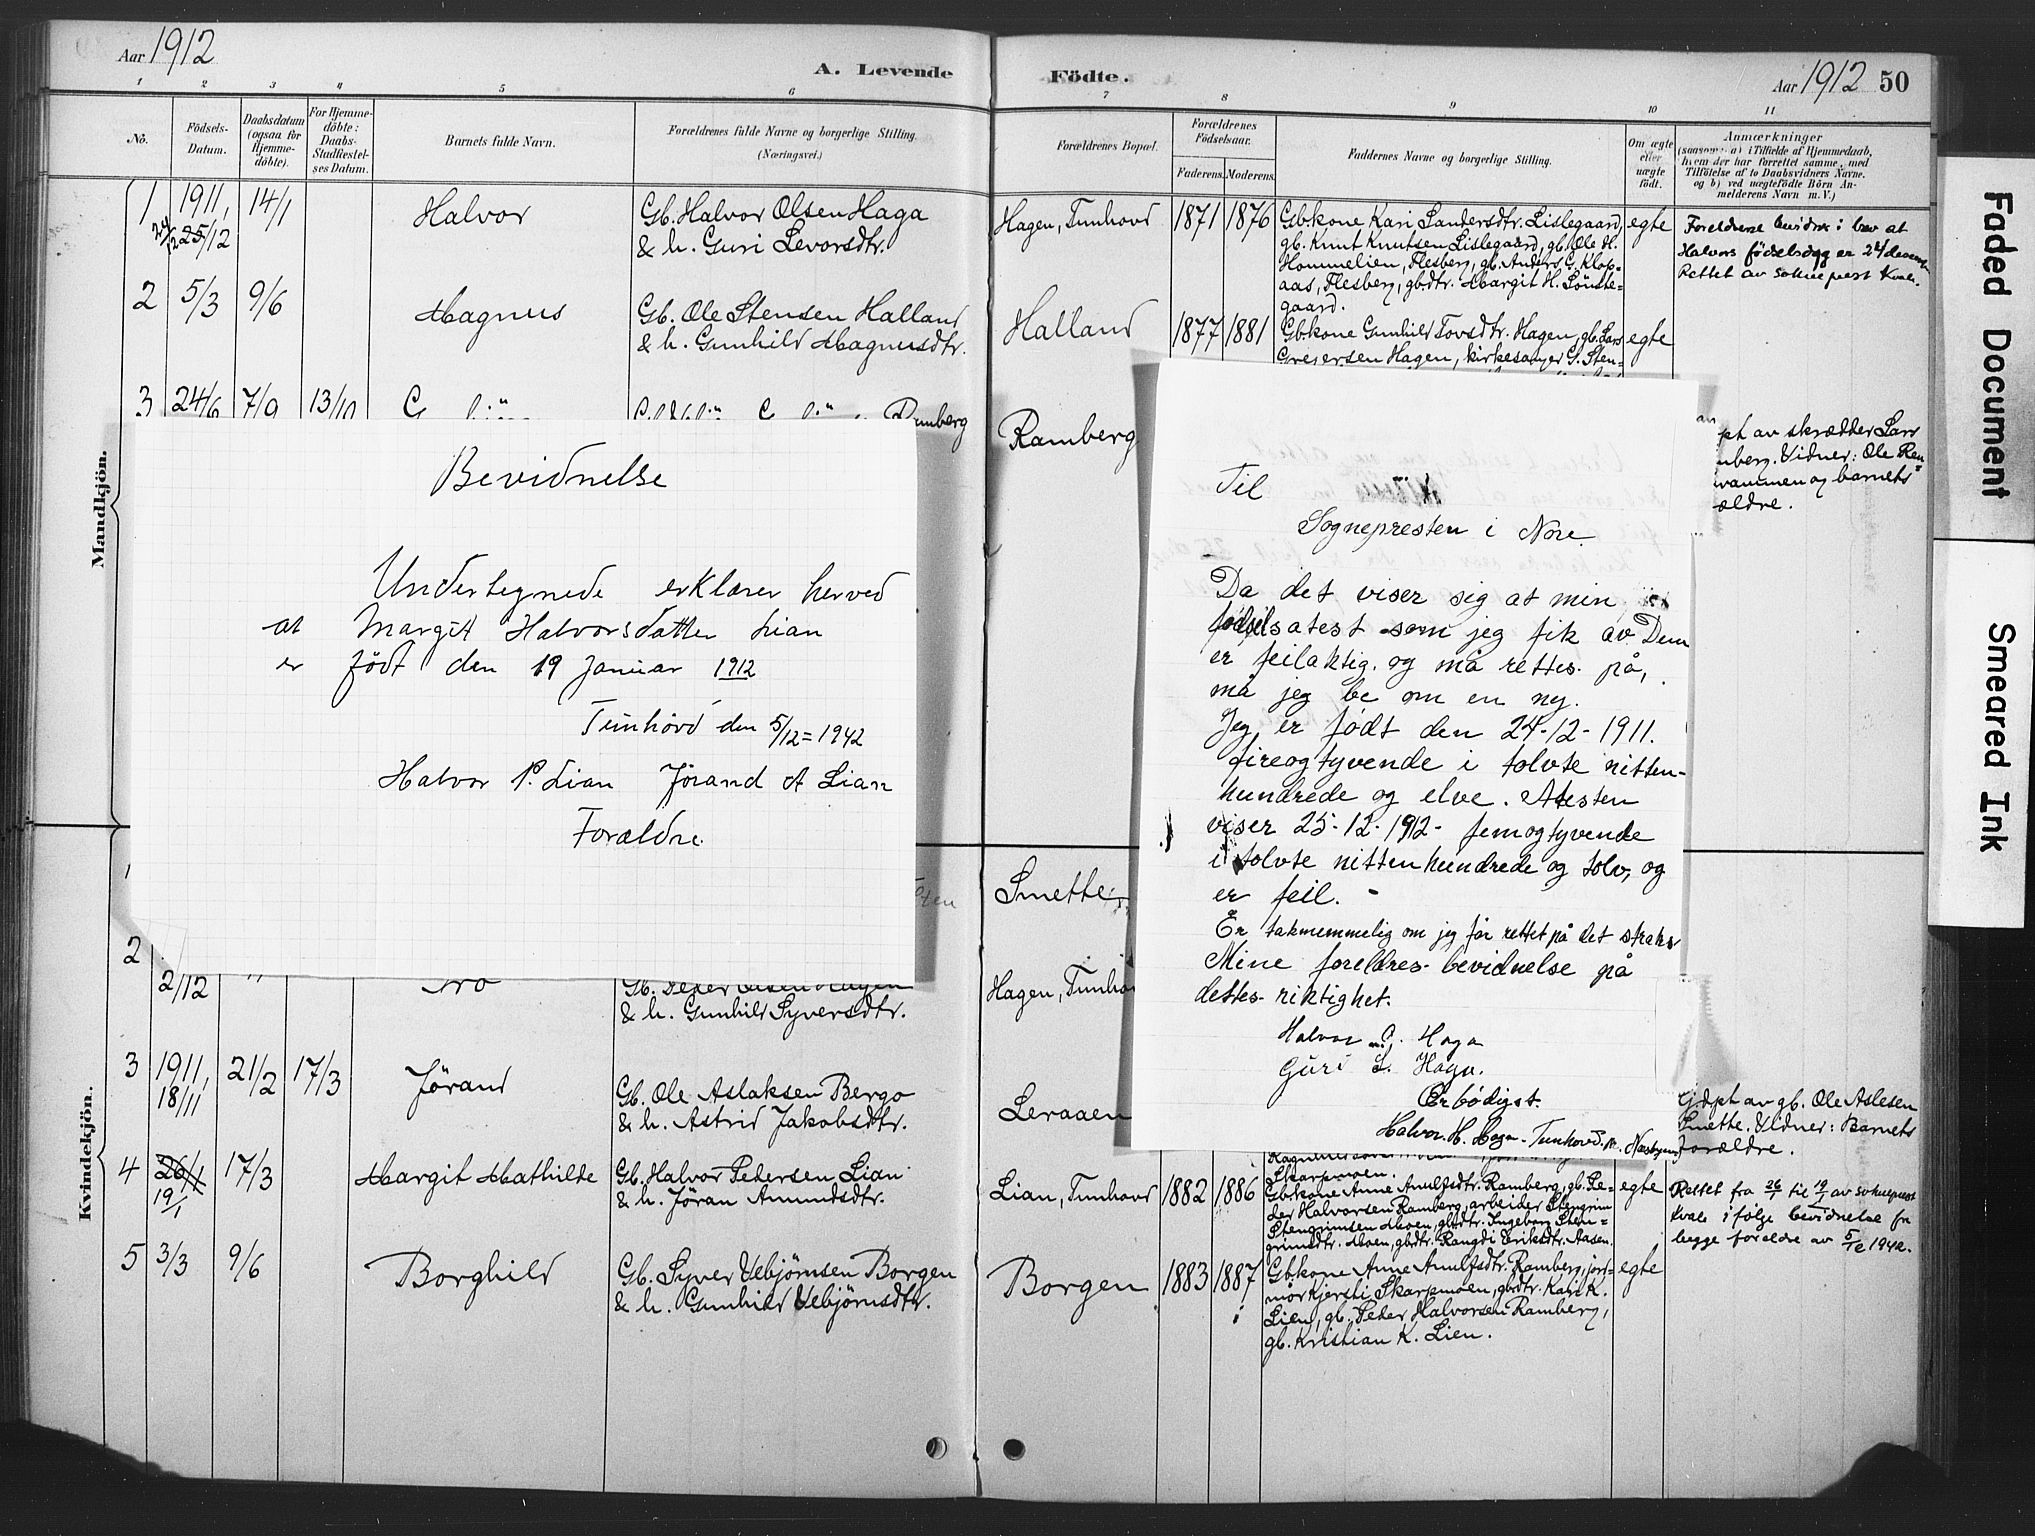 Aar 1912
A. Levende
1 2 3 4 5 6
No.
Födsels-
Datum.
Daabsdatum
(ogsaa for
Hjemme-
döbte).
For Hjemme-
döbte:
Daabs-
Stadfæstel-
ses Datum.
Barnets fulde Navn.
Forældrenes fulde Navne og borgerlige Stilling.
(Næringsvei.)
Mandkjön.
1 1911, 14/1 Halvor Gb. Halvor Olsen Haga
24/12 25/12 & h. Guri Levorsdtr.
2 5/3 9/6 Magnus Gb. Ole Stensen Halland
& h. Gunhild Magnusdtr.
3 24/6 7/9 13/10 Ramberg
Bevidnelse
Undertegnede erklærer herved
at Margit Halvorsdatter Lian
er født den 19 Januar 1912
Tunhovd den 5/12 = 1942
Halvor P. Lian Jörand A Lian
Forældre.
Kvindekjön.
2
2/12 Gb. Peder Olsen Hagen
& h. Gunhild Syversdtr.
3 1911, 21/2 17/3 Jørand Gb. Ole Aslaksen Bergo
18/11 & h. Astrid Jakobsdtr.
4 26/1 17/3 Margit Mathilde Gb. Halvor Pedersen Lian
19/1 & h. Jöran Amundsdtr.
5 3/3 9/6 Borghild Gb. Syver Vebjörnsen Borgen
& h. Gunhild Vebjörnsdtr.
Födte.
Aar 1912 50
7 8 9 10 11
Forældrenes Bopæl.
Forældrenes
Födselsaar.
Faderens. Moderens.
Faddernes Navne og borgerlige Stilling.
Om ægte
eller
uægte
födt.
Anmærkninger
(saasom: a) i Tilfælde af Hjemmedaab,
hvem der har forrettet samme, med
Tilföielse af to Daabsvidners Navne.
og b) ved uægtefödte Börn An-
melderens Navn m. V.)
Hagen, Tunhovd 1871 1876 Gbkone Kari Sandersdtr. Lislegaard, egte
gb. Knut Knutsen Lislegaard, gb. Ole H.
Hommelien, Flesberg, gb. Anders G. Klop-
aas, Flesberg, gbdtr. Margit H. Sönste-
gaard.
Foreldrene bevidner i brev at
Halvors födselsdag er 24 desem
Rettet av sokneprest Kvale.
Halland 1877 1881 Gbkone Gunhild Tovsdtr. Hagen, gb. Lars egte
Gregersen Hagen, kirkesanger G. Sten-
Ramberg
pt av skrædder Lars
mberg. Vidner: Ole Ren
vammen og barnets
ældre.
Til
Sognepresten i Nore.
Da det viser sig at min
fødselsatest som jeg fik av Dem
er feilaktig. og må rettes på,
må jeg be om en ny.
Jeg er født den 24-12-1911.
fireogtyvende i tolvte nitten-
hundrede og elve. Atesten
viser 25-12-1912- femogtyvende
i tolvte nittenhundrede og tolv, og
er feil. -
Er takmemmelig om jeg får rettet på det straks
Mine foreldres bevidnelse på
dettes riktighet.
Halvor O. Haga
Guri L. Haga.
Erbödigst.
Halvor H. Haga - Tunhovd.
Smette
Hagen, Tunhov
Leraaen
Hjdpt av gb. Ole Aslesen
Smette. Vidner: Barnets
forældre.
Skarpmoen.
Lian, Tunhovd 1882 1886 Gbkone Anne Arnulfsdtr. Ramberg, gb. Pe- egte
der Halvorsen Ramberg, arbeider Stengrim
Stengrimsen Moen, gbdtr. Ingeborg Sten-
grimsdtr. Moen, gbdtr. Rangdi Eriksdtr. Aasen.
Rettet fra 26/1 til 19/1 av sokneprest
Kvale i følge bevidnelse fr
begge foreldre av 5/12 1942.
Borgen 1883 1887 Gbkone Anne Arnulfsdtr. Ramberg, jord- egte
mor Kjersti Skarpmoen, gbdtr. Kari K.
Lien, gb. Peder Halvorsen Ramberg,
gb. Kristian K. Lien.
Faded Document
Smeared Ink